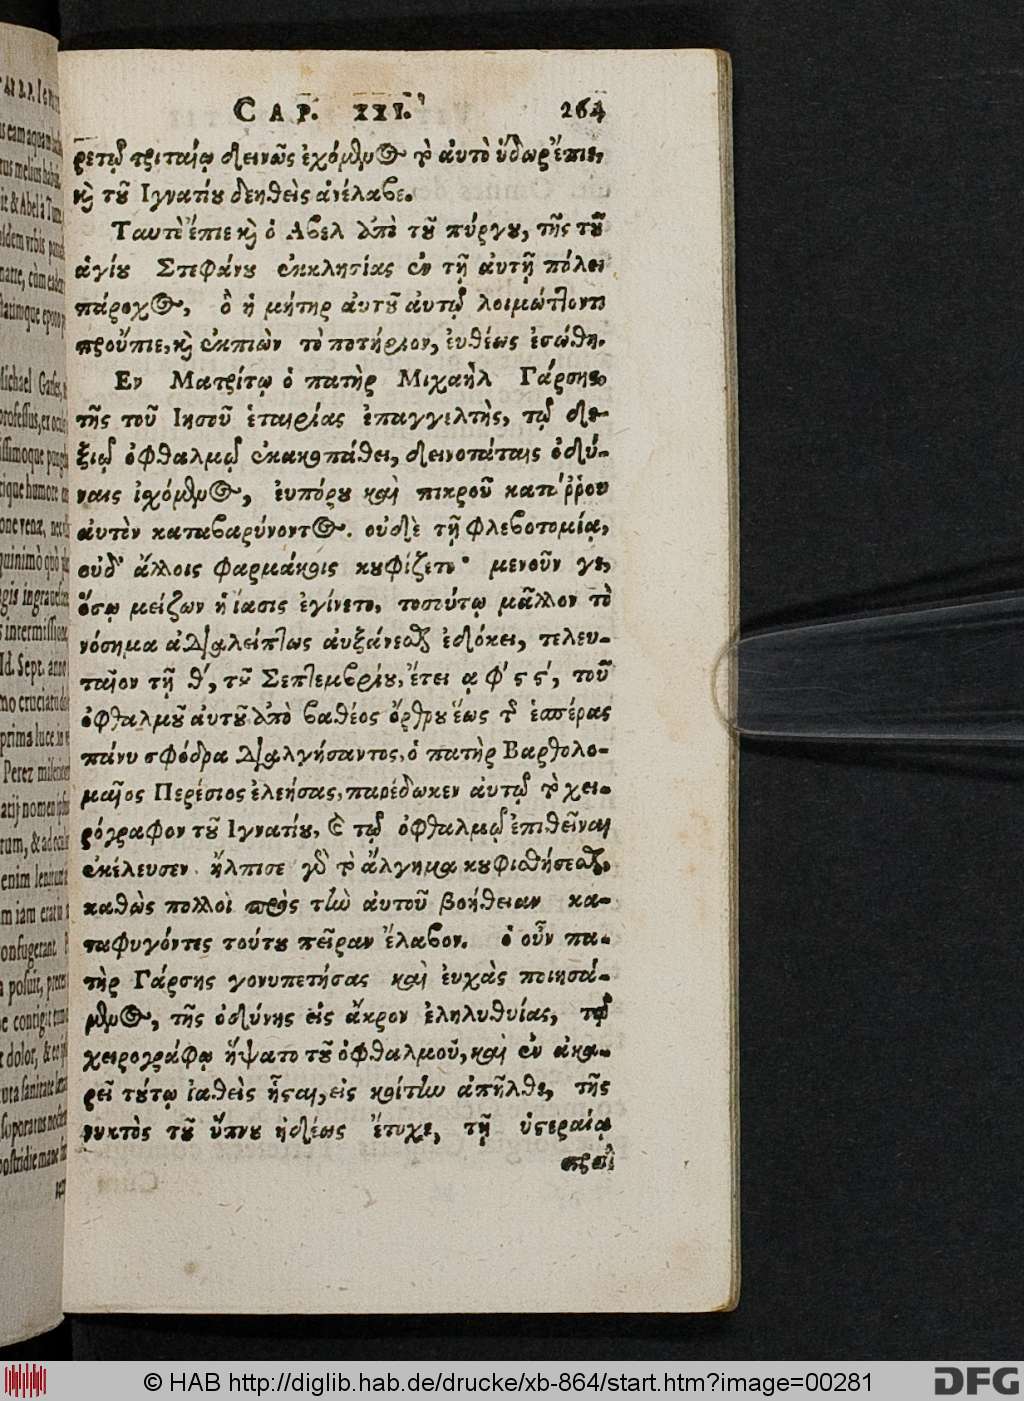 CAP. XXI. 264
ρετῷ τριταίῳ δεινῶς ἐχόμενος τὸ αὐτὸ ὕδωρ ἔπιε,
καὶ τοῦ Ιγνατίου δεηθεὶς ἀνέλαβε.
Ταυτὸ ἔπιε καὶ ὁ Αβελ ἀπὸ τοῦ πύργου, τῆς τοῦ
ἁγίου Στεφάνου ἐκκλησίας ἐν τῇ αὐτῇ πόλει
πάροχος, ὃ ἡ μήτηρ αὐτοῦ αὐτῷ λοιμώττοντι
προὔπιε, καὶ ἐκπιὼν τὸ ποτήριον, εὐθέως ἐσώθη.
Εν Ματρίτῳ ὁ πατὴρ Μιχαὴλ Γάρσης
τῆς τοῦ Ιησοῦ ἑταιρίας ἐπαγγελτὴς, τῷ δε-
ξιῷ ὀφθαλμῷ ἐκακοπάθει, δεινοτάταις ὀδύ-
ναις ἐχόμενος, ἐυπόρου καὶ πικροῦ κατάῤῥου
αὐτὸν καταβαρύνοντος. οὐδὲ τῇ φλεβοτομίᾳ,
οὐδ' ἄλλοις φαρμάκοις κουφίζετο· μενοῦν γε,
ὅσῳ μείζων ἡ ἴασις ἐγίνετο, τοσούτῳ μᾶλλον τὸ
νόσημα ἀδιαλείπτως αὐξάνεσθαι ἐδόκει, τελευ-
ταῖον τῇ θ', τοῦ Σεπτεμβρίου, ἔτει α φ' ϛ ϛ', τοῦ
ὀφθαλμοῦ αὐτοῦ ἀπὸ βαθέος ὄρθρου ἕως τῆς ἑσπέρας
πάνυ σφόδρα διαλγήσαντος, ὁ πατὴρ Βαρθολο-
μαῖος Περέσιος ἐλεήσας, παρέδωκεν αὐτῷ τὸ χει-
ρόγραφον τοῦ Ιγνατίου, καὶ τῷ ὀφθαλμῷ ἐπιθεῖναι
ἐκέλευσεν. ἤλπισε γὰρ τὸ ἄλγημα κουφισθήσεσθαι,
καθὼς πολλοὶ πρὸς τὴν αὐτοῦ βοήθειαν κα-
ταφυγόντες τούτου πεῖραν ἔλαβον. ὁ οὖν πα-
τὴρ Γάρσης γονυπετήσας καὶ εὐχὰς ποιησά-
μενος, τῆς ὀδύνης εἰς ἄκρον ἐληλυθυίας, τῷ
χειρογράφῳ ἥψατο τοῦ ὀφθαλμοῦ, καὶ ἐν ἀκα-
ρεῖ τούτῳ ἰαθεὶς ᾖσαι, εἰς κοίτην ἀπῆλθε, τῆς
νυκτὸς τοῦ ὕπνου ἡδέως ἔτυχε, τῇ ὑστεραίᾳ
πρωῒ
© HAB http://diglib.hab.de/drucke/xb-864/start.htm?image=00281
DFG